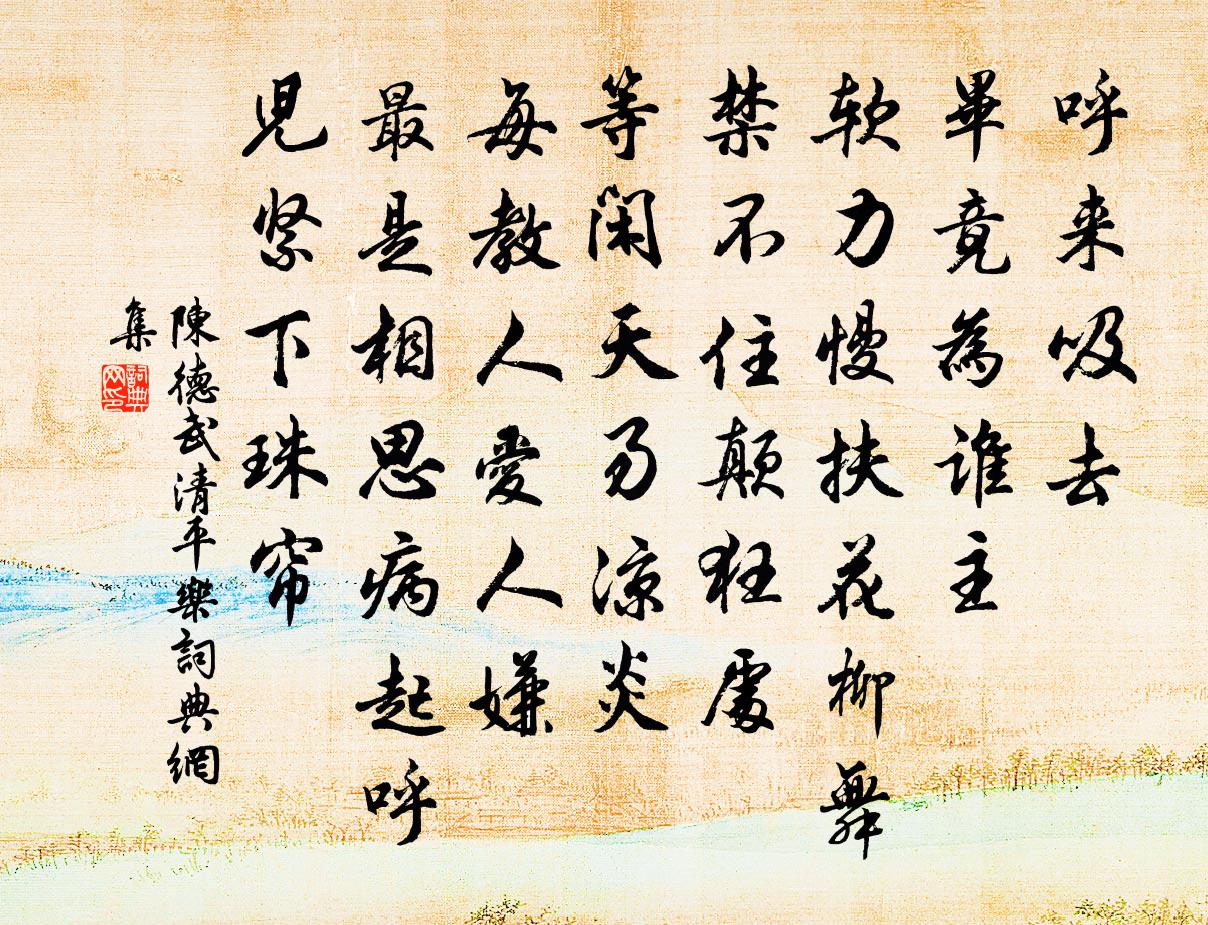 呼来吸去
畢竟為誰主
軟力慢扶花柳舞
禁不住顛狂處
等閑天与凉炎
每教人愛人嫌
最是相思病起呼
児紧下珠帘
陳德武清平樂詞典網
集
詞典网印